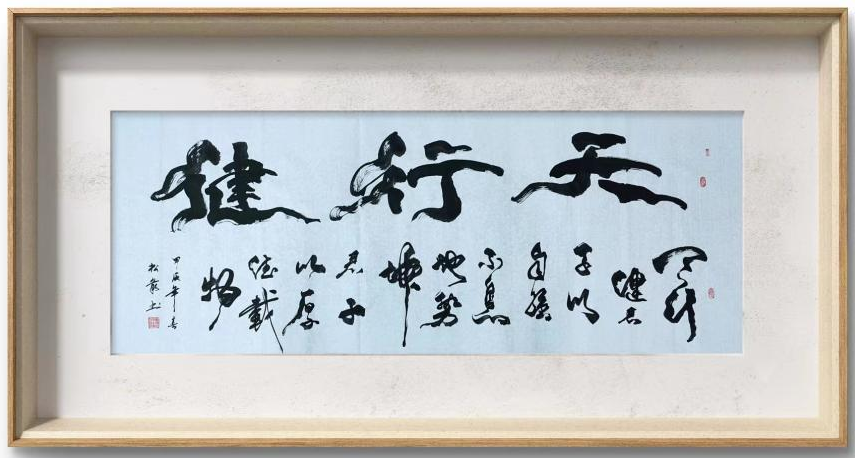 天行健
天行
健君
子以
自强
不息
地势
坤
君子
以厚
德载
物
甲辰年春
书